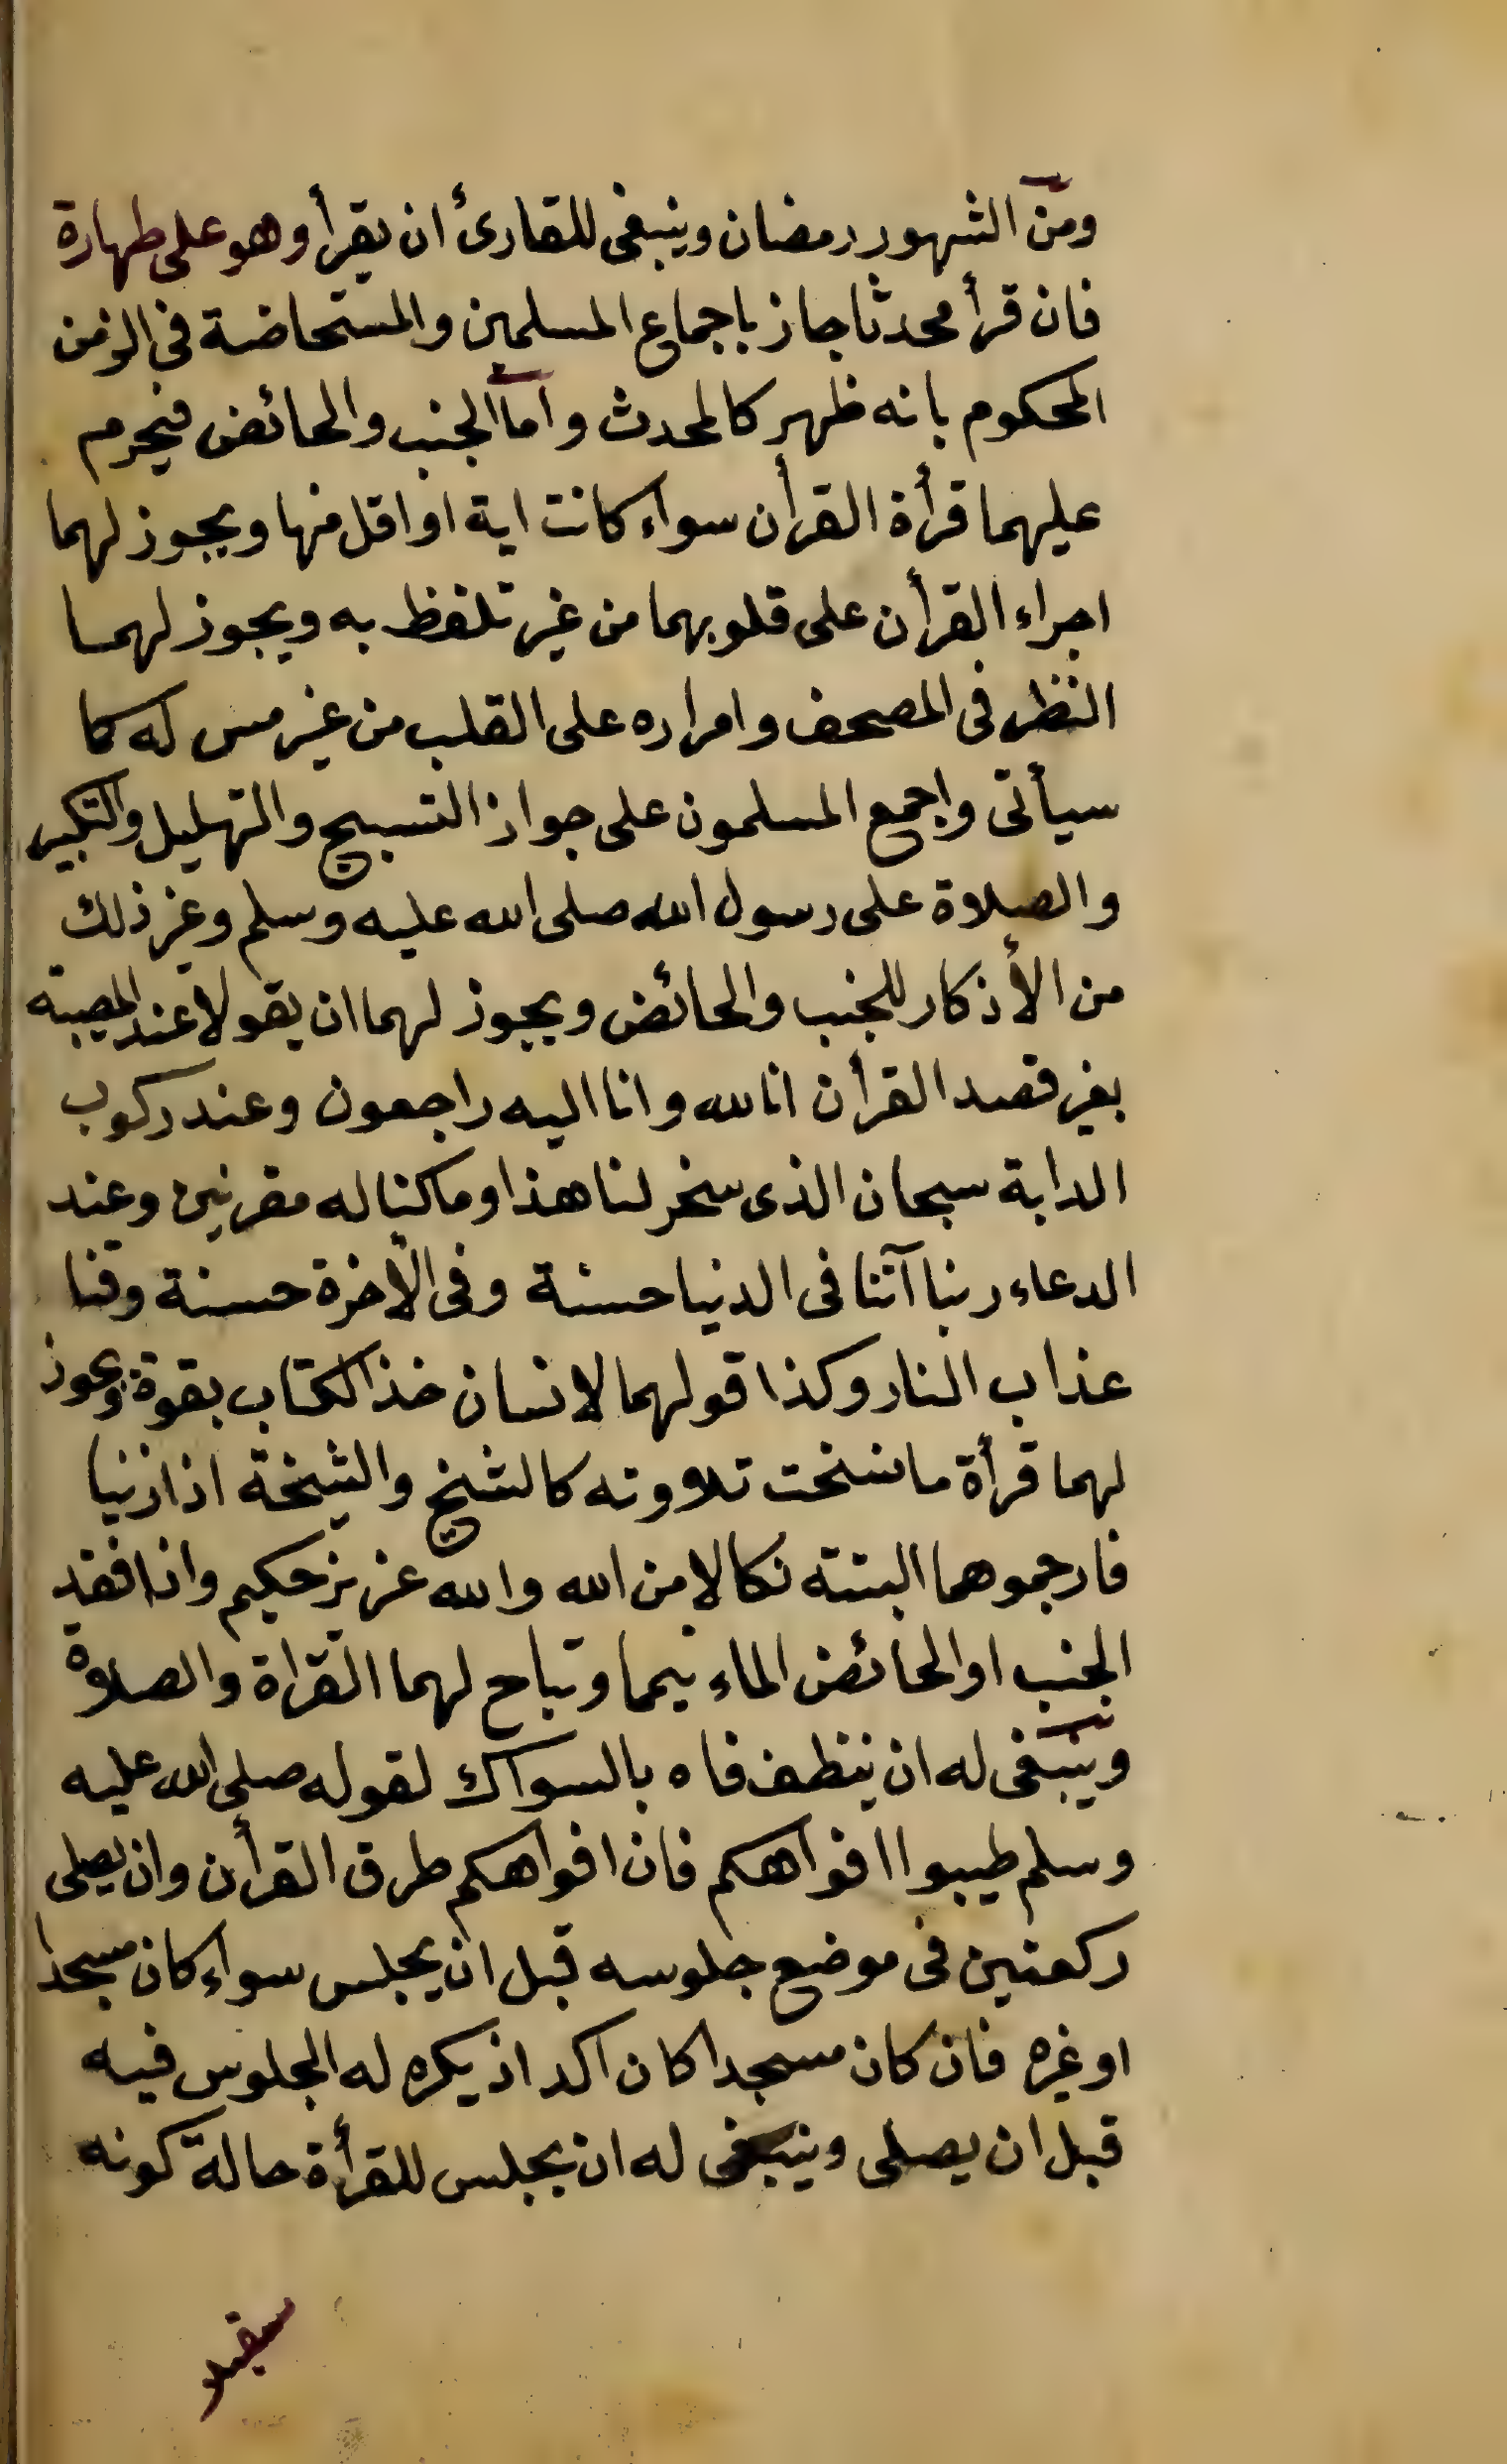 ومن الشهور رمضان وينبغى للقارئ ان يقرأ وهو على طهارة
فان قرأ محدثا جاز باجماع المسلمين والمستحاضة فى الزمن
المحكوم بانه طهر كالمحدث واما الجنب والحائض فيحرم
عليهما قرأة القرأن سواء كانت اية او اقل منها ويجوز لهما
اجراء القرأن على قلوبهما من غير تلفظ به ويجوز لهما
النظر فى المصحف وامراره على القلب من غير مس له كما
سيأتى واجمع المسلمون على جواز التسبيح والتهليل والتكبير
والصلاة على رسول الله صلى الله عليه وسلم وغير ذلك
من الأذكار للجنب والحائض ويجوز لهما ان يقولا عند المصيبة
بغير قصد القرأن انا لله وانا اليه راجعون وعند ركوب
الدابة سبحان الذى سخر لنا هذا وما كنا له مقرنين وعند
الدعاء ربنا آتنا فى الدنيا حسنة وفى الأخرة حسنة وقنا
عذاب النار وكذا قولهما لانسان خذ الكتاب بقوة ويجوز
لهما قرأة ما نسخت تلاوته كالشيخ والشيخة اذا زنيا
فارجموهما البتته نكالا من الله والله عزيز حكيم واذا فقد
الجنب او الحائض الماء تيمما وتباح لهما القراة والصلاة
وينبغى له ان ينظف فاه بالسواك لقوله صلى الله عليه
وسلم طيبوا افواهكم فان افواهكم طرق القرأن وان يصلى
ركعتين فى موضع جلوسه قبل ان يجلس سواء كان مسجدا
او غيره فان كان مسجدا كان اكد اذ يكره له الجلوس فيه
قبل ان يصلى وينبغى له ان يجلس للقرأة حالة كونه